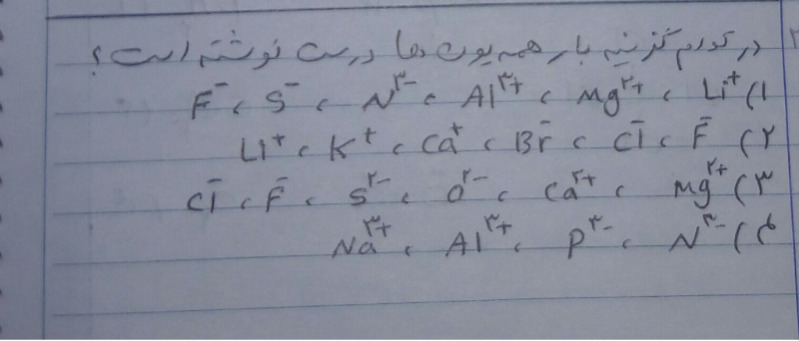 در کدام گزینه بار همه یون ها درست نوشته است؟
۱) Li⁺ ، Mg²⁺ ، Al³⁺ ، N³⁻ ، S⁻ ، F⁻
۲) F⁻ ، Cl⁻ ، Br⁻ ، Ca⁺ ، K⁺ ، Li⁺
۳) Mg²⁺ ، Ca²⁺ ، O²⁻ ، S²⁻ ، F⁻ ، Cl⁻
۴) N³⁻ ، P³⁻ ، Al³⁺ ، Na³⁺